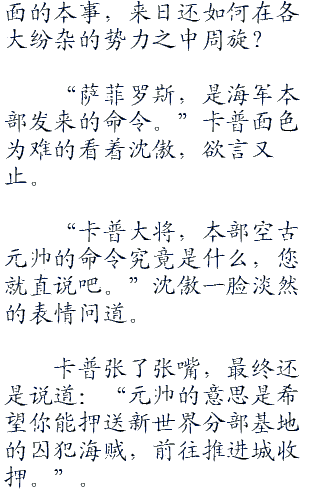 面的本事，来日还如何在各
大纷杂的势力之中周旋？
“萨菲罗斯，是海军本
部发来的命令。”卡普面色
为难的看着沈傲，欲言又
止。
“卡普大将，本部空古
元帅的命令究竟是什么，您
就直说吧。”沈傲一脸淡然
的表情问道。
卡普张了张嘴，最终还
是说道：“元帅的意思是希
望你能押送新世界分部基地
的囚犯海贼，前往推进城收
押。”。